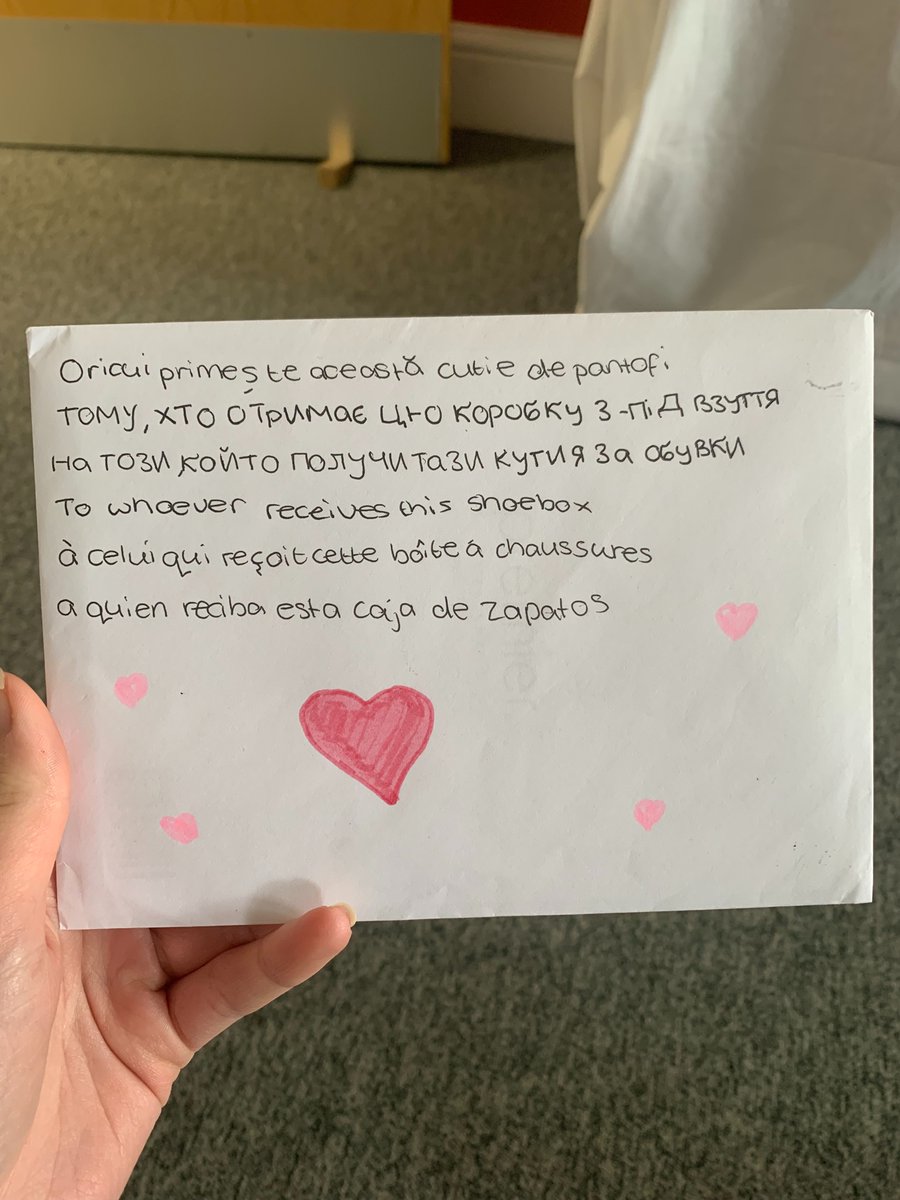 Oricui primește această cutie de pantofi
тому, хто отримає цю коробку з-під взуття
на този който получи тази кутия за обувки
To whoever receives this shoebox
à celui qui reçoit cette boîte á chaussures
a quien reciba esta caja de zapatos